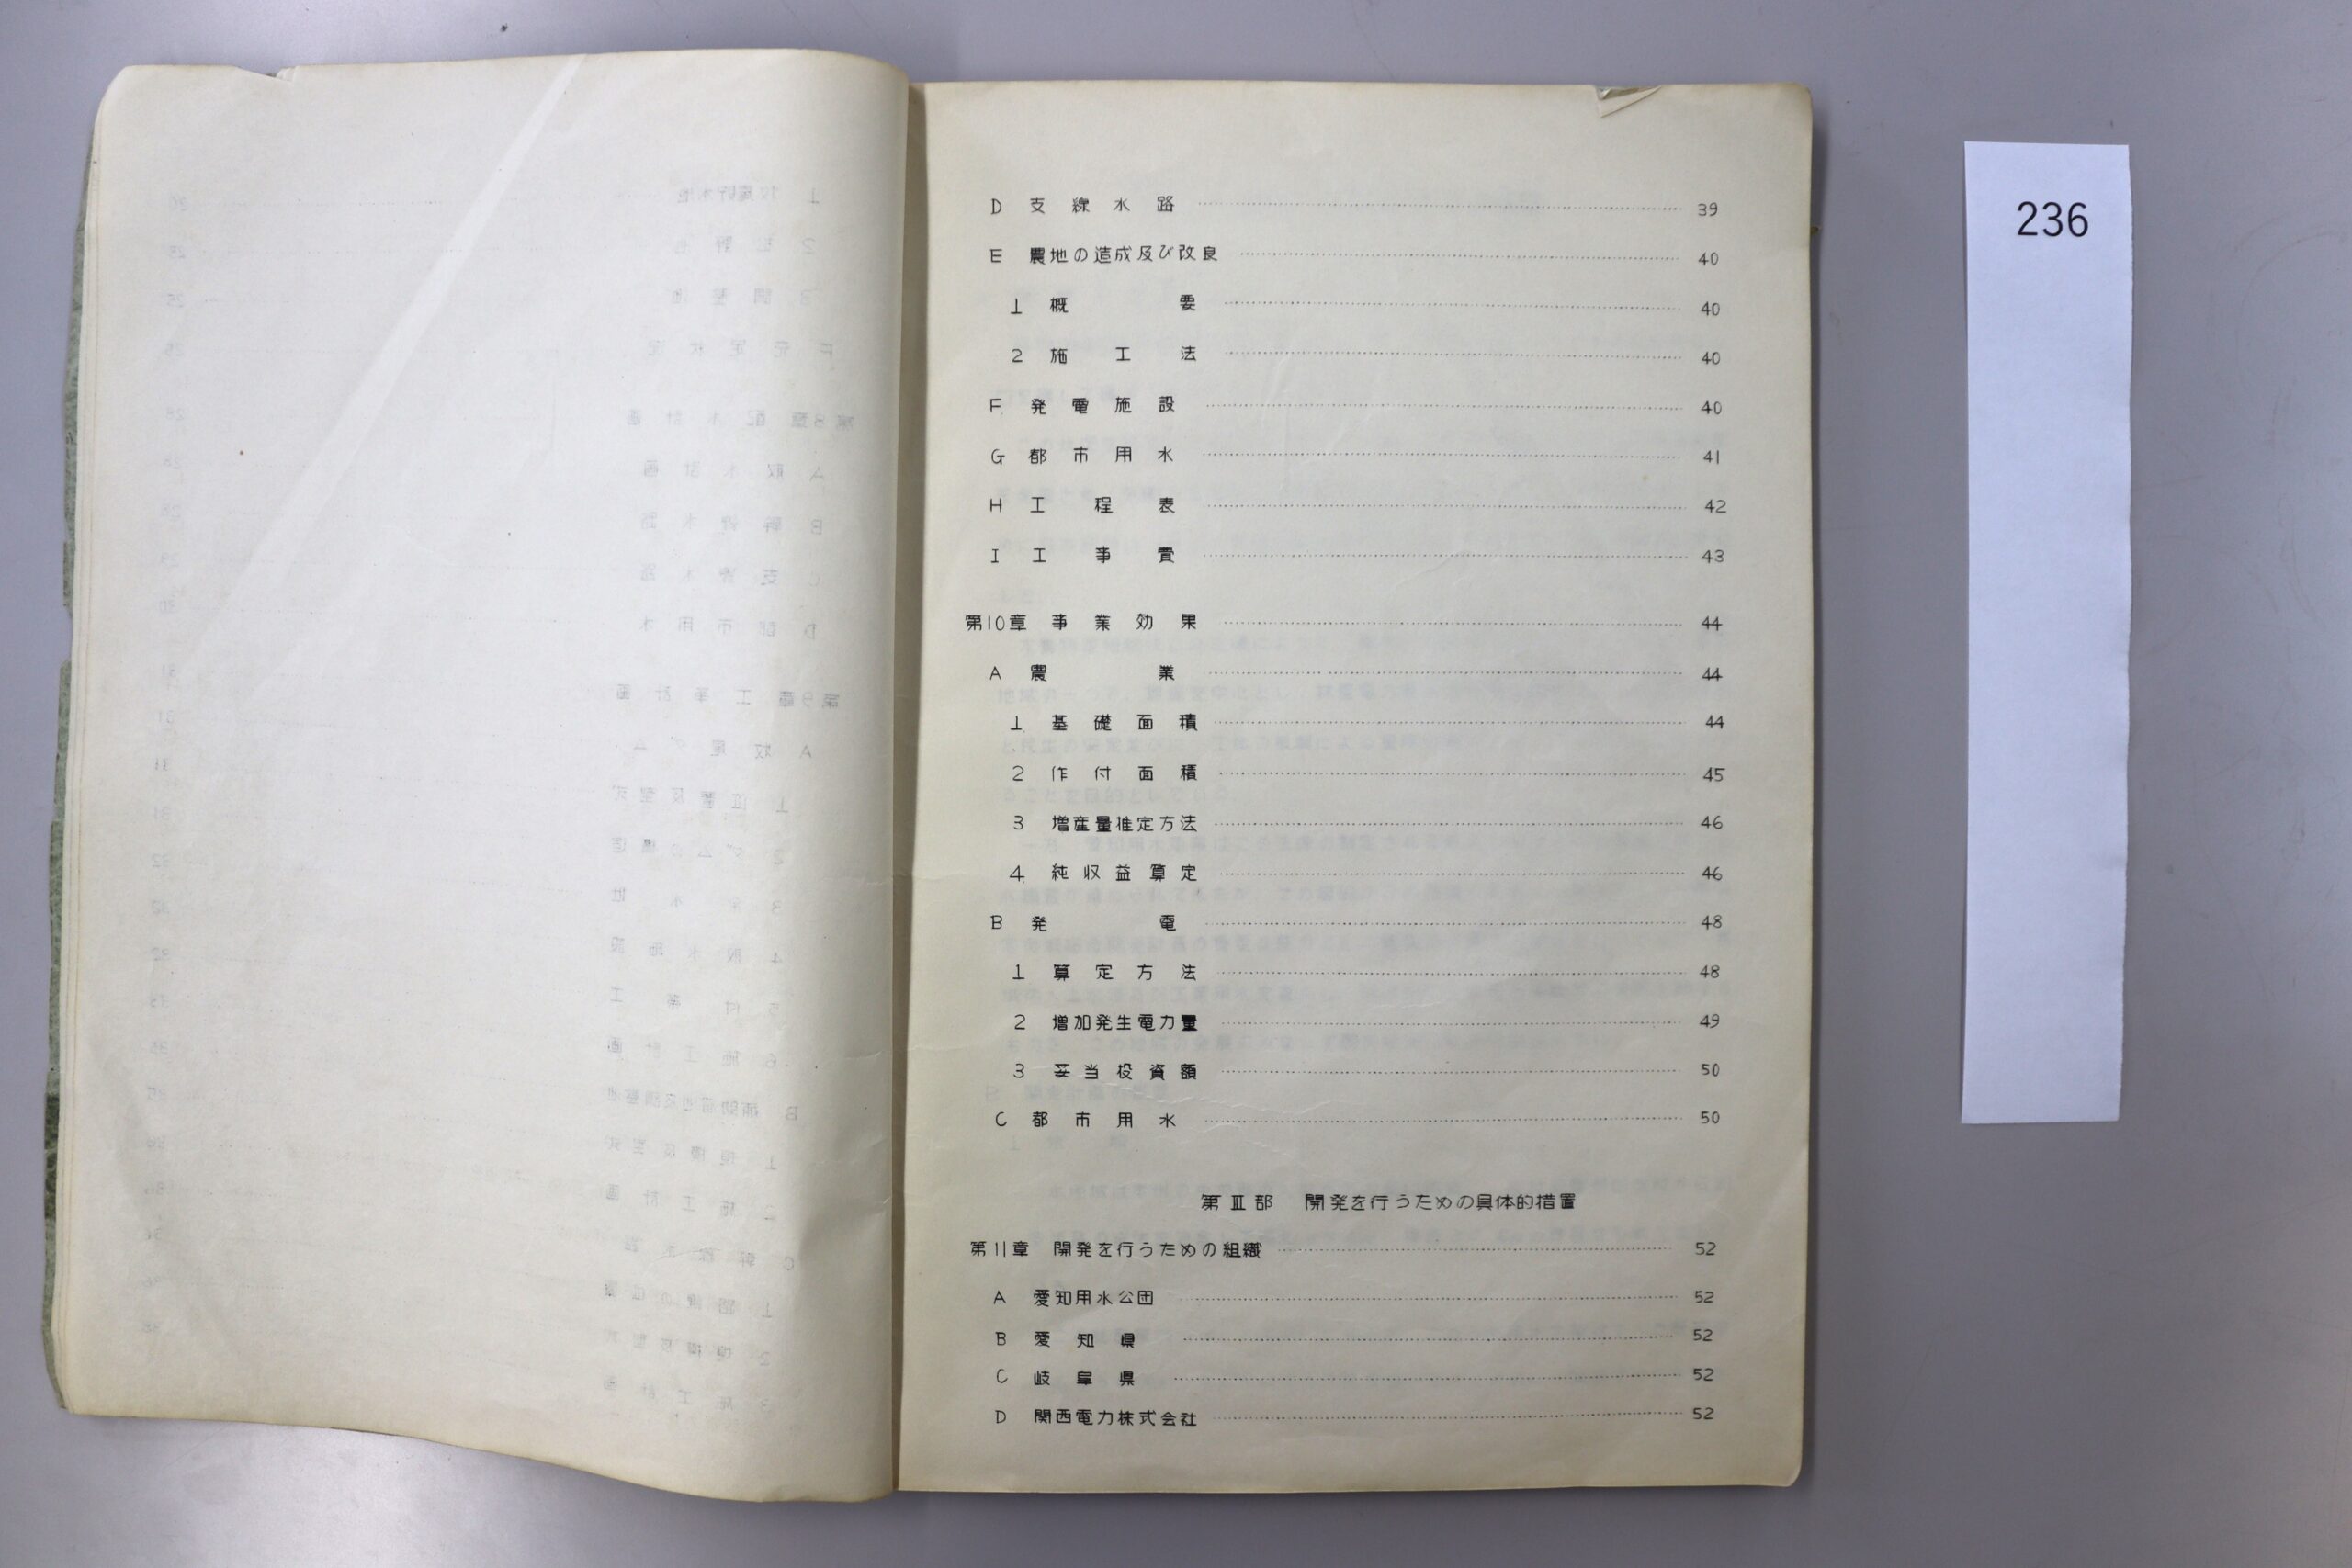 D 支線水路 39
E 農地の造成及び改良 40
1 概要 40
2 施工法 40
F 発電施設 40
G 都市用水 41
H 工程表 42
I 工事費 43
第10章 事業効果 44
A 農業 44
1 基礎面積 44
2 作付面積 45
3 増産量推定方法 46
4 純収益算定 46
B 発電 48
1 算定方法 48
2 増加発生電力量 49
3 妥当投資額 50
C 都市用水 50
第Ⅲ部 開発を行うための具体的措置
第11章 開発を行うための組織 52
A 愛知用水公団 52
B 愛知県 52
C 岐阜県 52
D 関西電力株式会社 52
236